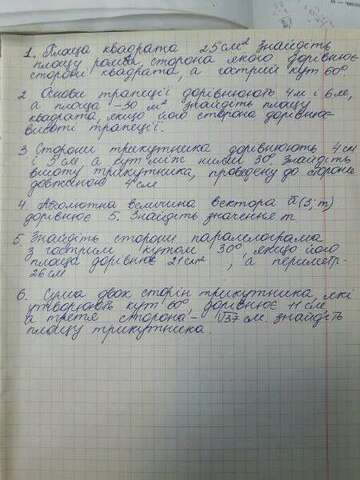 1. Площа квадрата 25 см² Знайдіть
площу ромба, сторона якого дорівнює
стороні квадрата, а гострий кут 60°.
2 Основи трапеції дорівнюють 4м і 6м,
а площа -30 м² знайдіть площу
квадрата, якщо його сторона дорівнює
висоті трапеції.
3 Сторони трикутника дорівнюють 4 см
і 5 см, а кут між ними 30° Знайдіть
висоту трикутника, проведену до сторони
довжиною 4 см
4 Абсолютна величина вектора a̅ (3; m)
дорівнює 5. Знайдіть значення m.
5. Знайдіть сторони паралелограма
з гострим кутом 30°, якщо його
площа дорівнює 21 см², а периметр-
26 см
6. Сума двох сторін трикутника, які
утворюють кут 60°, дорівнює 11 см,
а третя сторона - √37 см. знайдіть
площу трикутника.